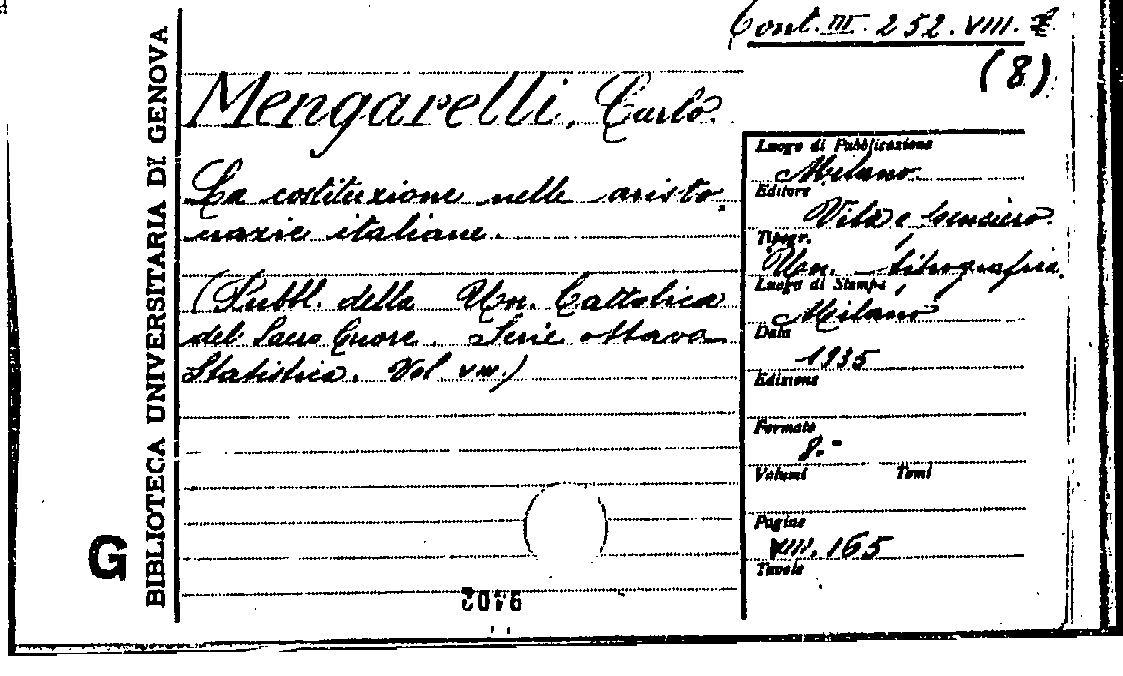 Cont. III. 252. VIII.
(8)
BIBLIOTECA UNIVERSITARIA DI GENOVA
G
Mengarelli, Carlo.
La costituzione nelle aristo
crazie italiane.
(Pubbl. della Un. Cattolica
del Sacro Cuore. Serie ottava
Statistica. Vol VIII.)
Luogo di Pubblicazione
Milano
Editore
Vita e Pensiero
Tipogr.
Un. Litografia
Luogo di Stampa
Milano
Data
1935
Edizione
Formato
8.-
Volumi Tomi
Pagine
VIII. 165
Tavole